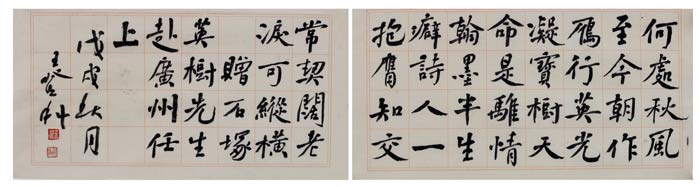 何處秋風
至今朝作
鴈行英光
凝寶樹天
命是離情
翰墨半生
癖詩人一
抱膺知交
常契闊老
淚可縱橫
贈石塚
英樹先生
赴廣州任
上
戊戌秋月
王登科